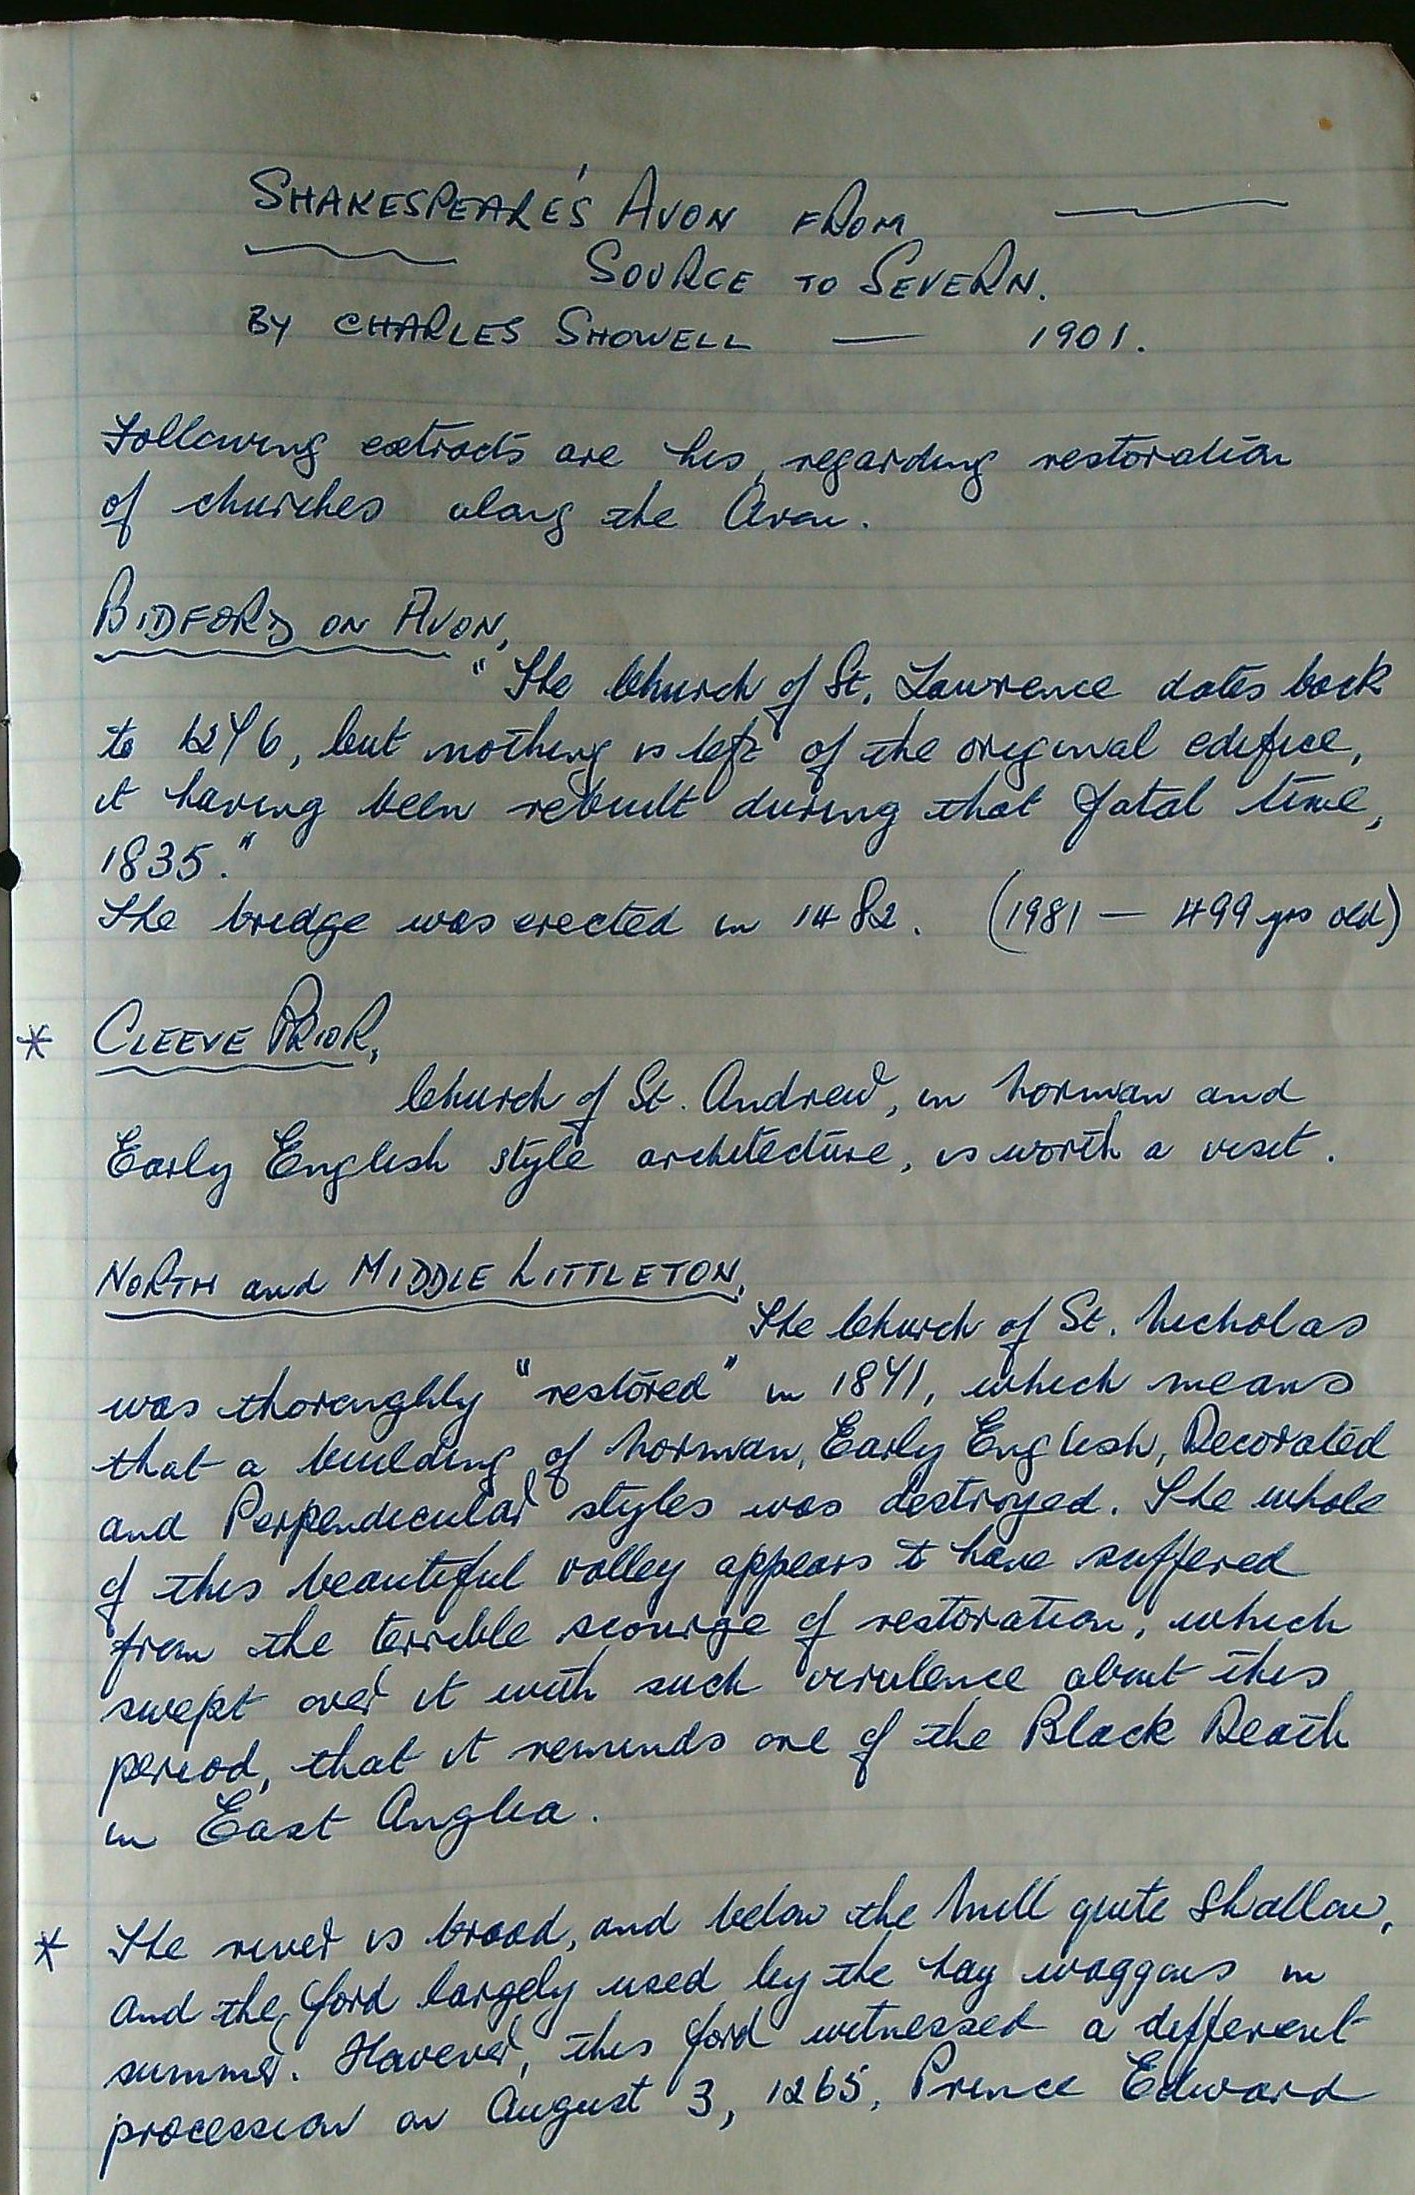 SHAKESPEARE'S AVON FROM
SOURCE TO SEVERN.
BY CHARLES SHOWELL — 1901.
Following extracts are his, regarding restoration
of churches along the Avon.
BIDFORD ON AVON,
"The Church of St. Lawrence dates back
to 1276, but nothing is left of the original edifice,
it having been rebuilt during that fatal time,
1835."
The bridge was erected in 1482. (1981 — 499 yrs old)
* CLEEVE PRIOR,
Church of St. Andrew, in Norman and
Early English style architecture, is worth a visit.
NORTH and MIDDLE LITTLETON,
The Church of St. Nicholas
was thoroughly "restored" in 1871, which means
that a building of Norman, Early English, Decorated
and Perpendicular styles was destroyed. The whole
of this beautiful valley appears to have suffered
from the terrible scourge of restoration, which
swept over it with such virulence about this
period, that it reminds one of the Black Death
in East Anglia.
* The river is broad, and below the Mill quite shallow,
and the ford largely used by the hay waggons in
summer. However, this ford witnessed a different
procession on August 3, 1265, Prince Edward